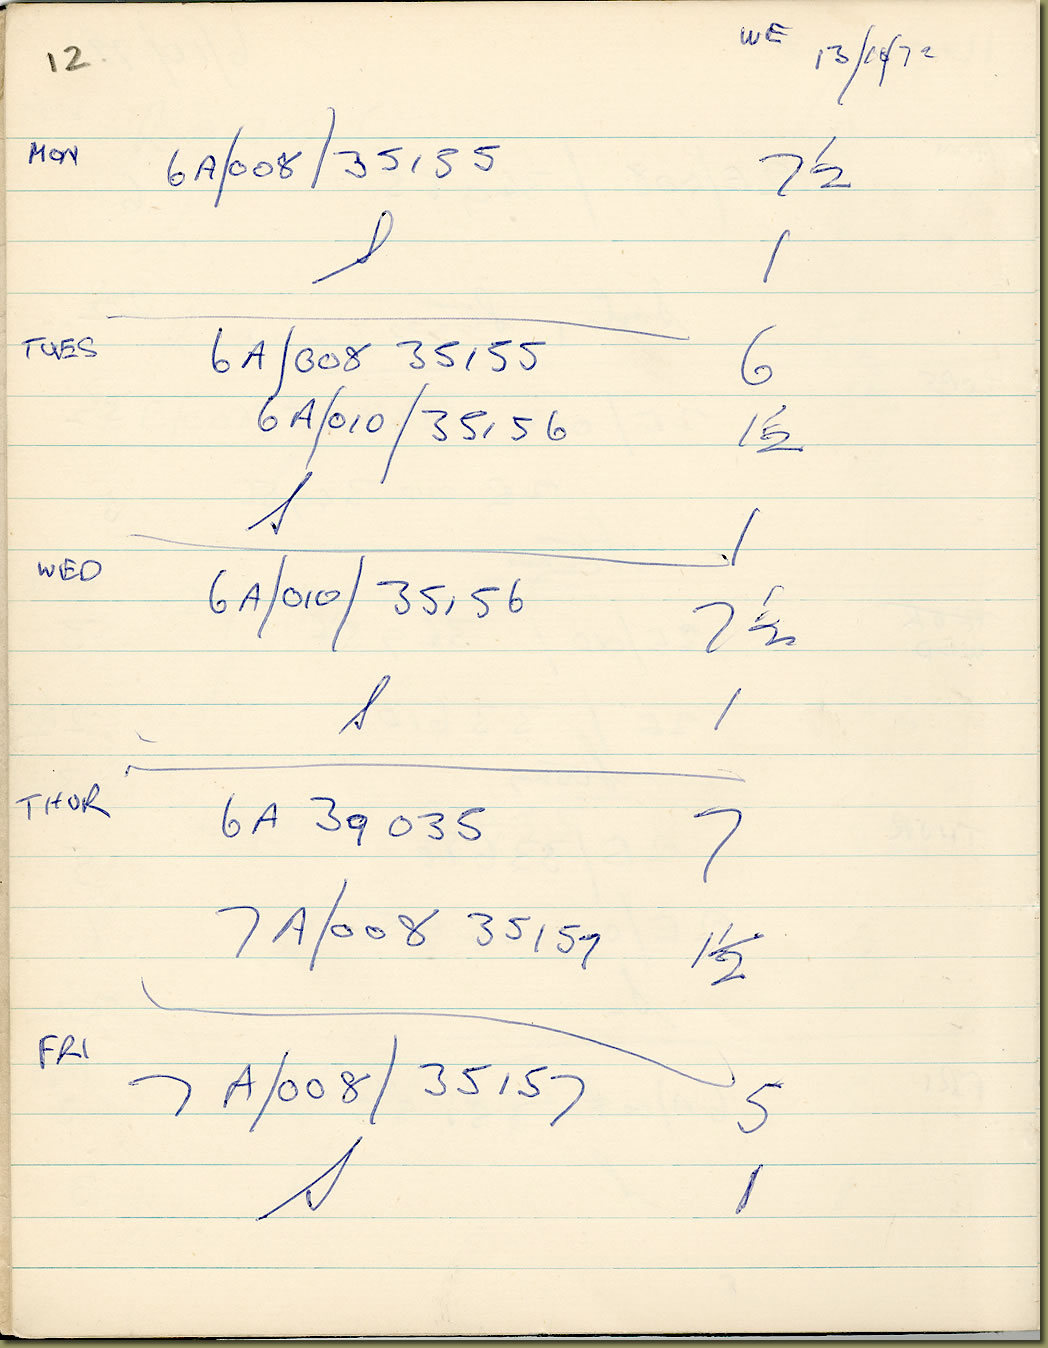 12.
WE 13/10/72
MON 6A/008/35,355 7½
S 1
TUES 6A/008 35,155 6
6A/010/35,156 1½
S 1
WED 6A/010/35,156 7½
S 1
THUR 6A 39035 7
7A/008 35,157 1½
FRI 7A/008/35,157 5
S 1